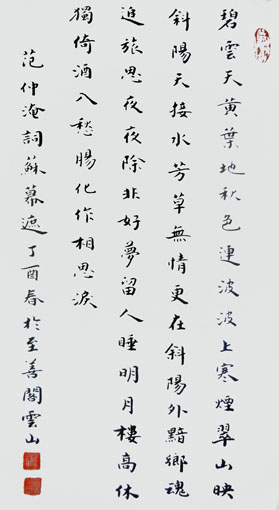 碧雲天黃葉地秋色連波波上寒煙翠山映
斜陽天接水芳草無情更在斜陽外黯鄉魂
追旅思夜夜除非好夢留人睡明月樓高休
獨倚酒入愁腸化作相思淚
范仲淹詞蘇幕遮丁酉春於至善閣雲山